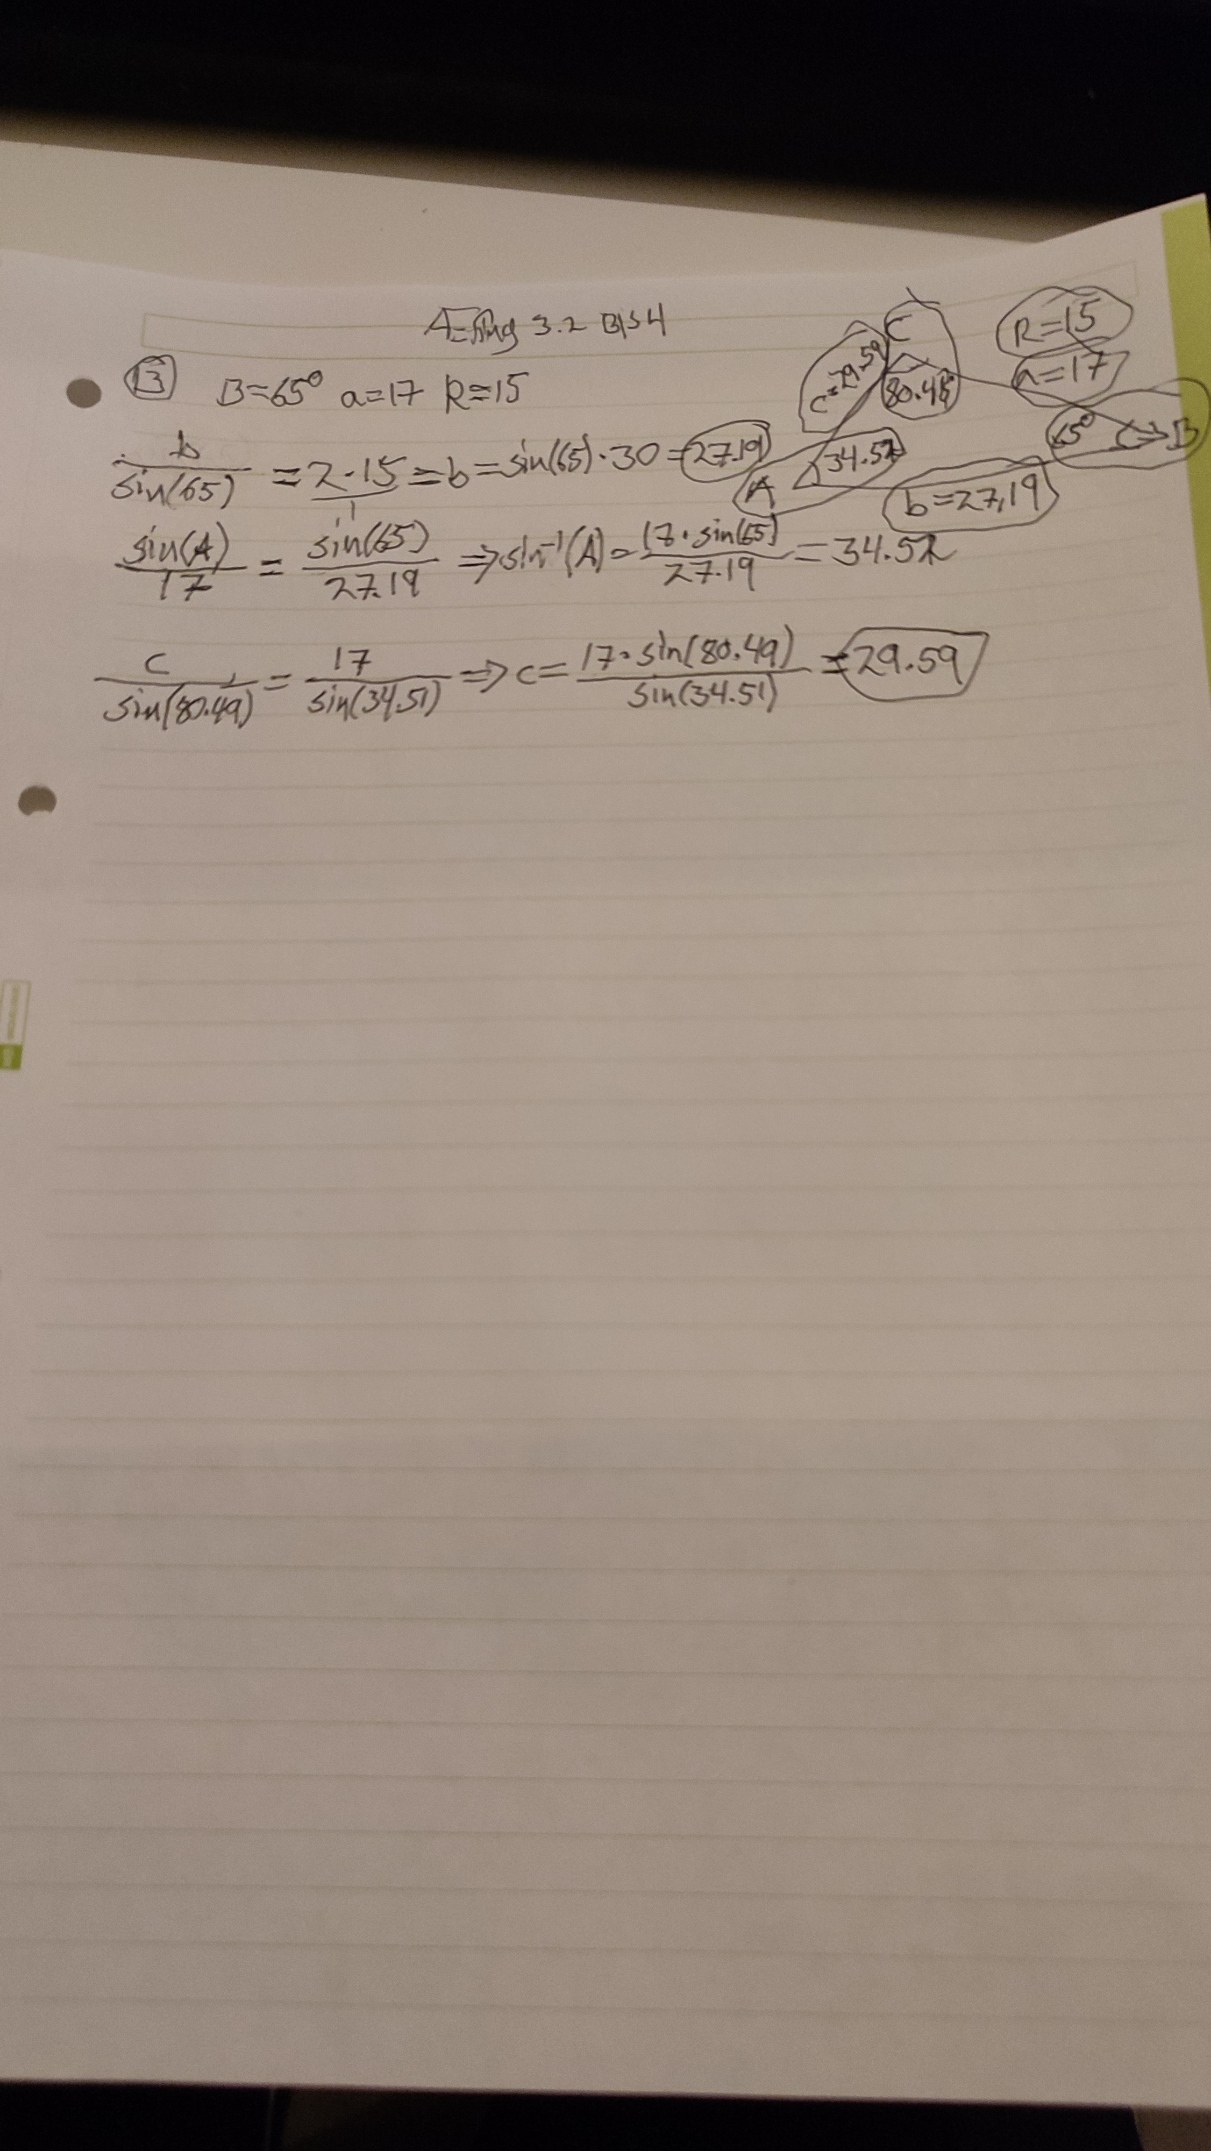 Æfing 3.2 Bls 4
13 B=65° a=17 R=15
b/sin(65) = 2·15/1 = b = sin(65)·30 = 27.19
sin(A)/17 = sin(65)/27.19 => sin⁻¹(A) = 17·sin(65)/27.19 = 34.52
c/sin(80.49) = 17/sin(34.51) => c = 17·sin(80.49)/sin(34.51) = 29.59
C
c=29.59
R=15
a=17
80.48
65° B
A 34.52
b=27,19